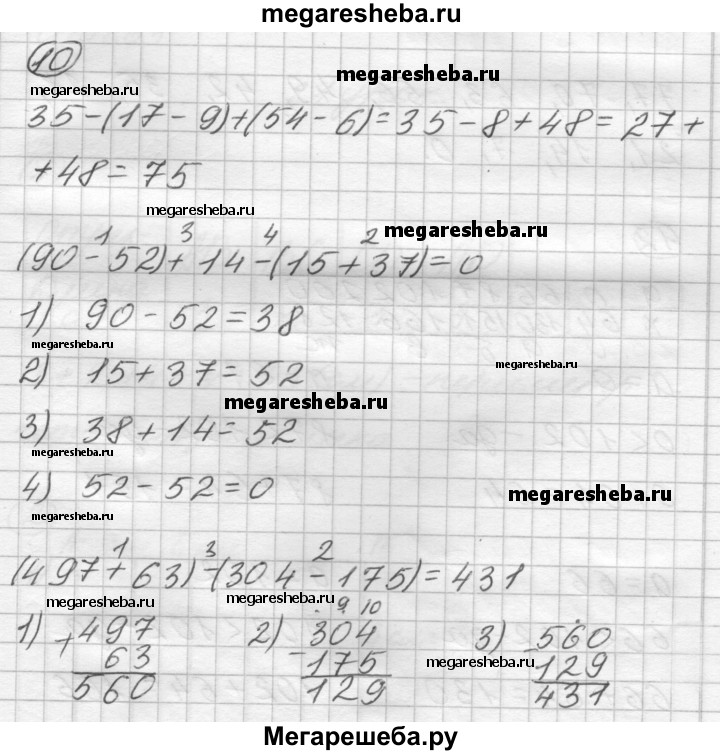 megaresheba.ru
10
megaresheba.ru
megaresheba.ru
35-(17-9)+(54-6)=35-8+48=27+
+48=75
megaresheba.ru
1 3 4 2 megaresheba.ru
(90-52)+14-(15+37)=0
1) 90-52=38
megaresheba.ru
2) 15+37=52
megaresheba.ru
megaresheba.ru
3) 38+14=52
megaresheba.ru
4) 52-52=0
megaresheba.ru
megaresheba.ru
1 3 2
(497+63)-(304-175)=431
megaresheba.ru megaresheba.ru
9 10
1) +497 2) -304 3) -560
63 175 129
megaresheba.ru
560 129 431
Мегарешеба.ру